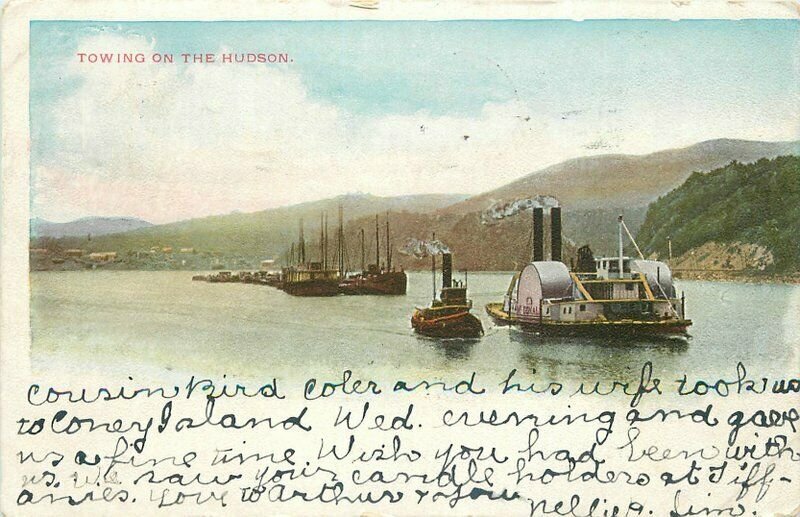 TOWING ON THE HUDSON.
Cousin Bird Coler and his wife took us
to Coney Island Wed. evening and gave
us a fine time. Wish you had been with
us. we saw your candle holders at Tiff-
anies. Love to Arthur & you
Nellie &. Sim.